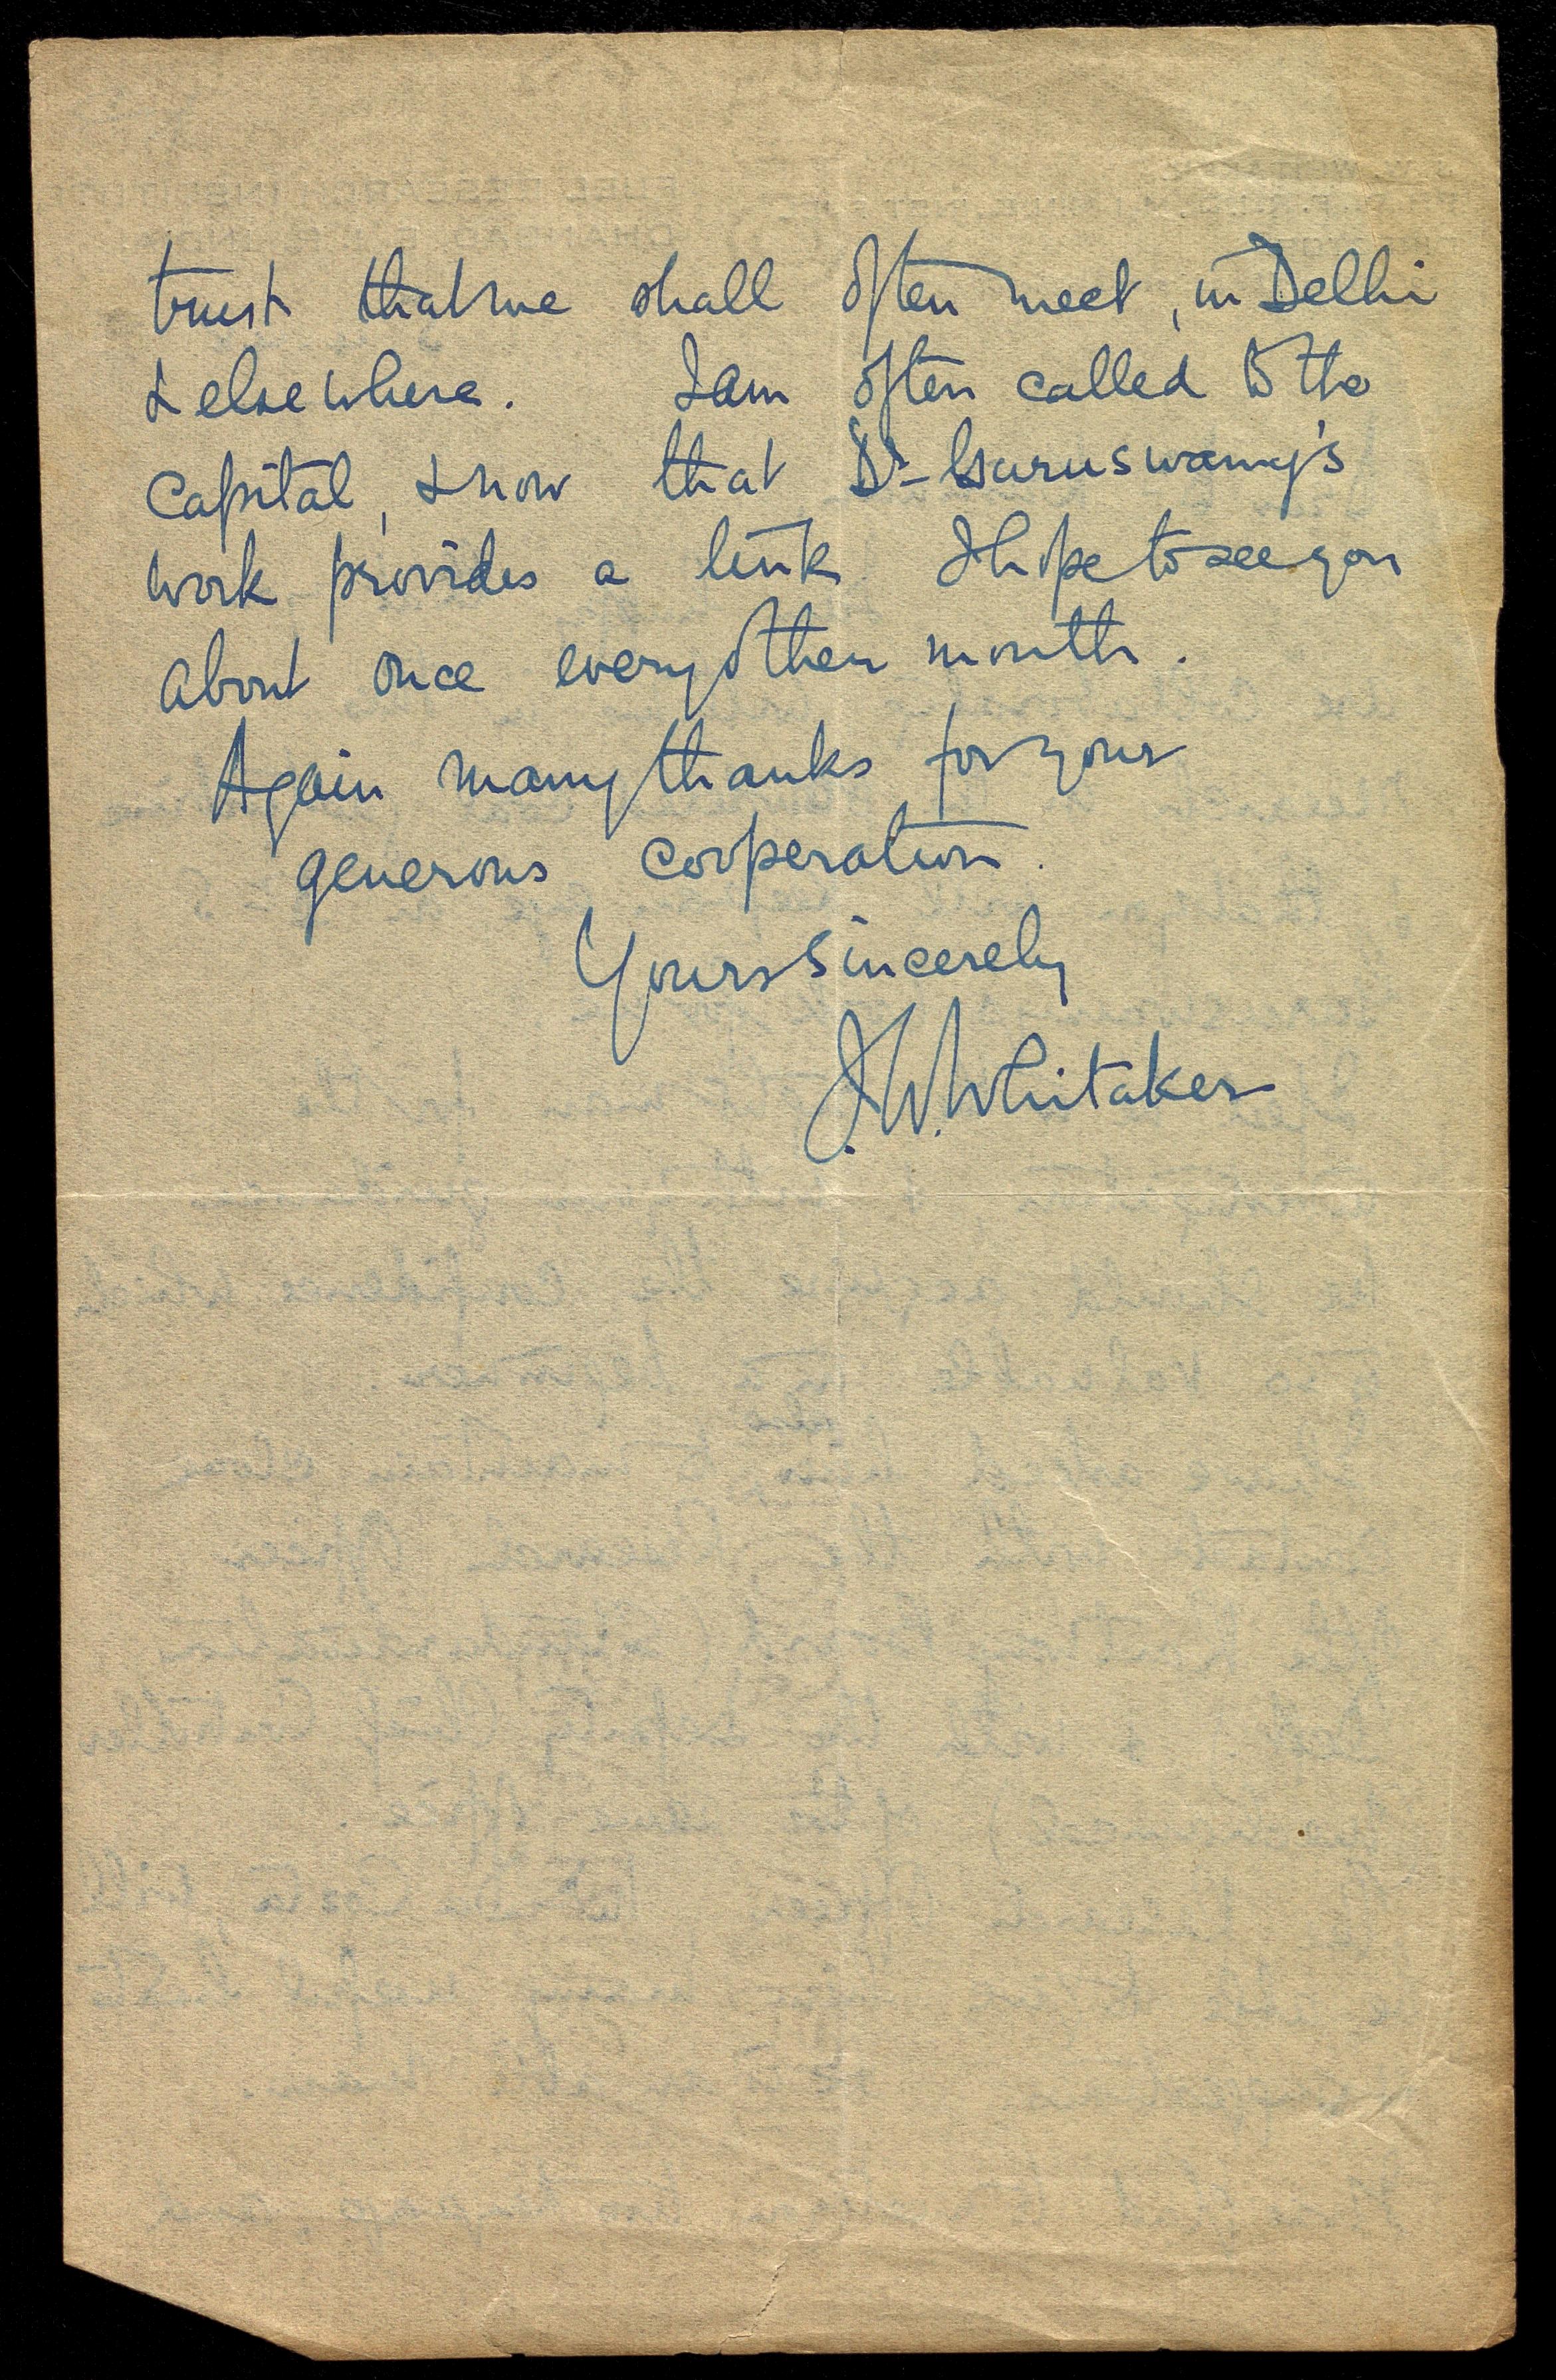 trust that we shall often meet, in Delhi
& elsewhere. I am often called to the
capital, & now that Dr Guruswamy's
work provides a link I hope to see you
about once every other month.
Again many thanks for your
generous cooperation.
Yours sincerely
J.W. Whitaker